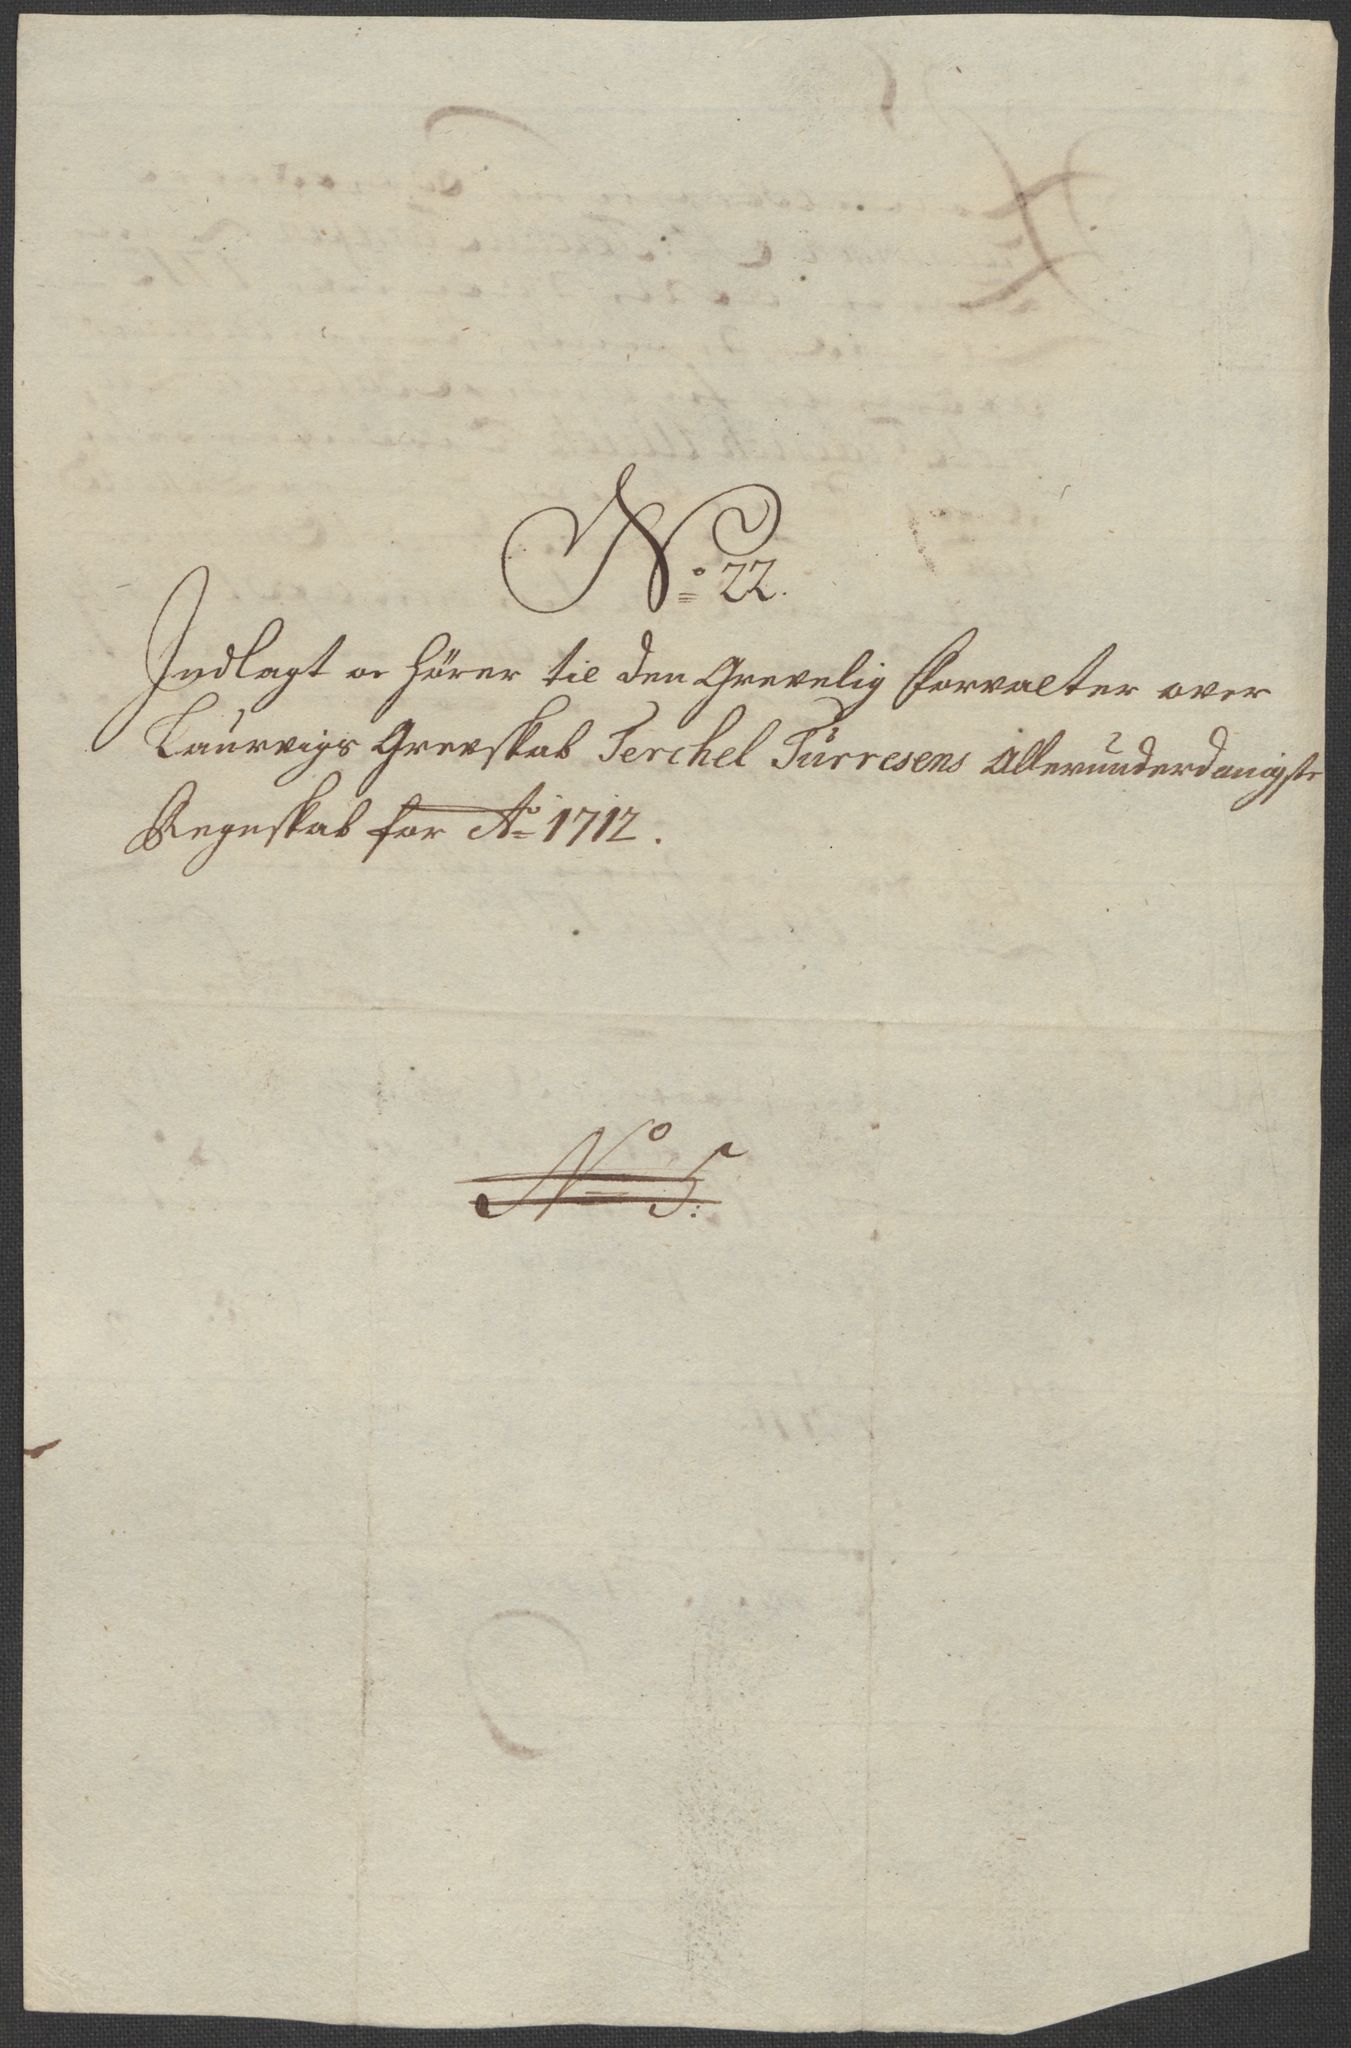 No 22.
Indlagt oc hörer til den Grevelig Forvalter over
Laurvigs Grevskab Terchel Türresens Allerunderdanigste
Regnskab for Ao 1712.
No 5: